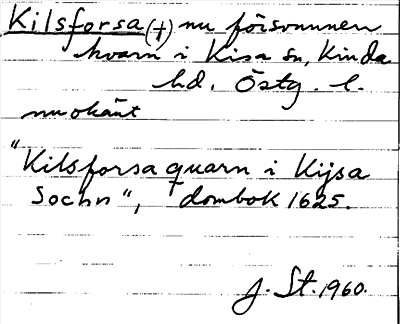 Kilsforsa (†) nu försvunnen
kvarn i Kisa sn, Kinda
hd. Östg. l.
nu okänt
"Kilsforsa quarn i Kijsa
Sochn", dombok 1625.
J. St. 1960.